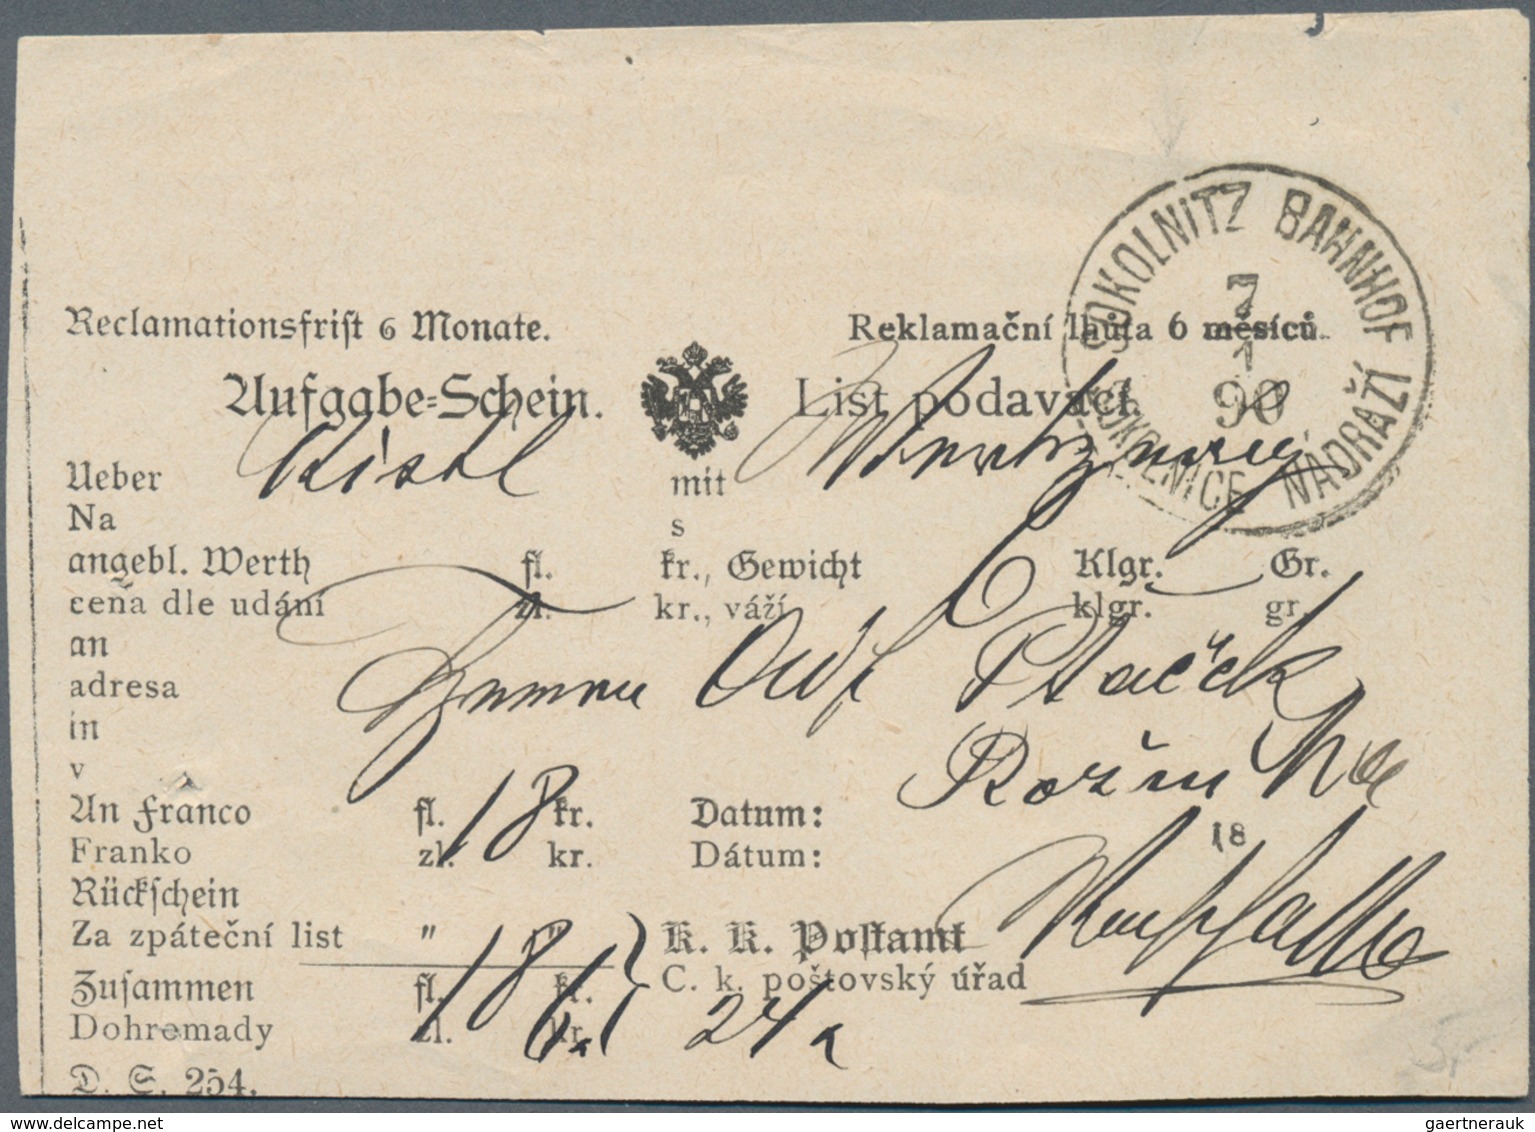 SOKOLNITZ BAHNHOF
7
1
90
SOKOLNICE NÁDRAŽÍ
Reclamationsfrist 6 Monate. Reklamační lhůta 6 měsíců
Aufgabe-Schein. List podavací.
Ueber Kistl mit
Na s
angebl. Werth fl. kr., Gewicht Klgr. Gr.
cena dle udání zl. kr., váží klgr. gr.
an
adresa Ptaček
in
v
An Franco fl. 18 kr. Datum: 18
Franko zl. kr. Dátum:
Rückschein
Za zpáteční list " " K. K. Postamt
Zusammen fl. 18 kr. C. k. poštovský úřad
Dohromady zl. 6 kr. 24
D. S. 254.
gaertnerauk